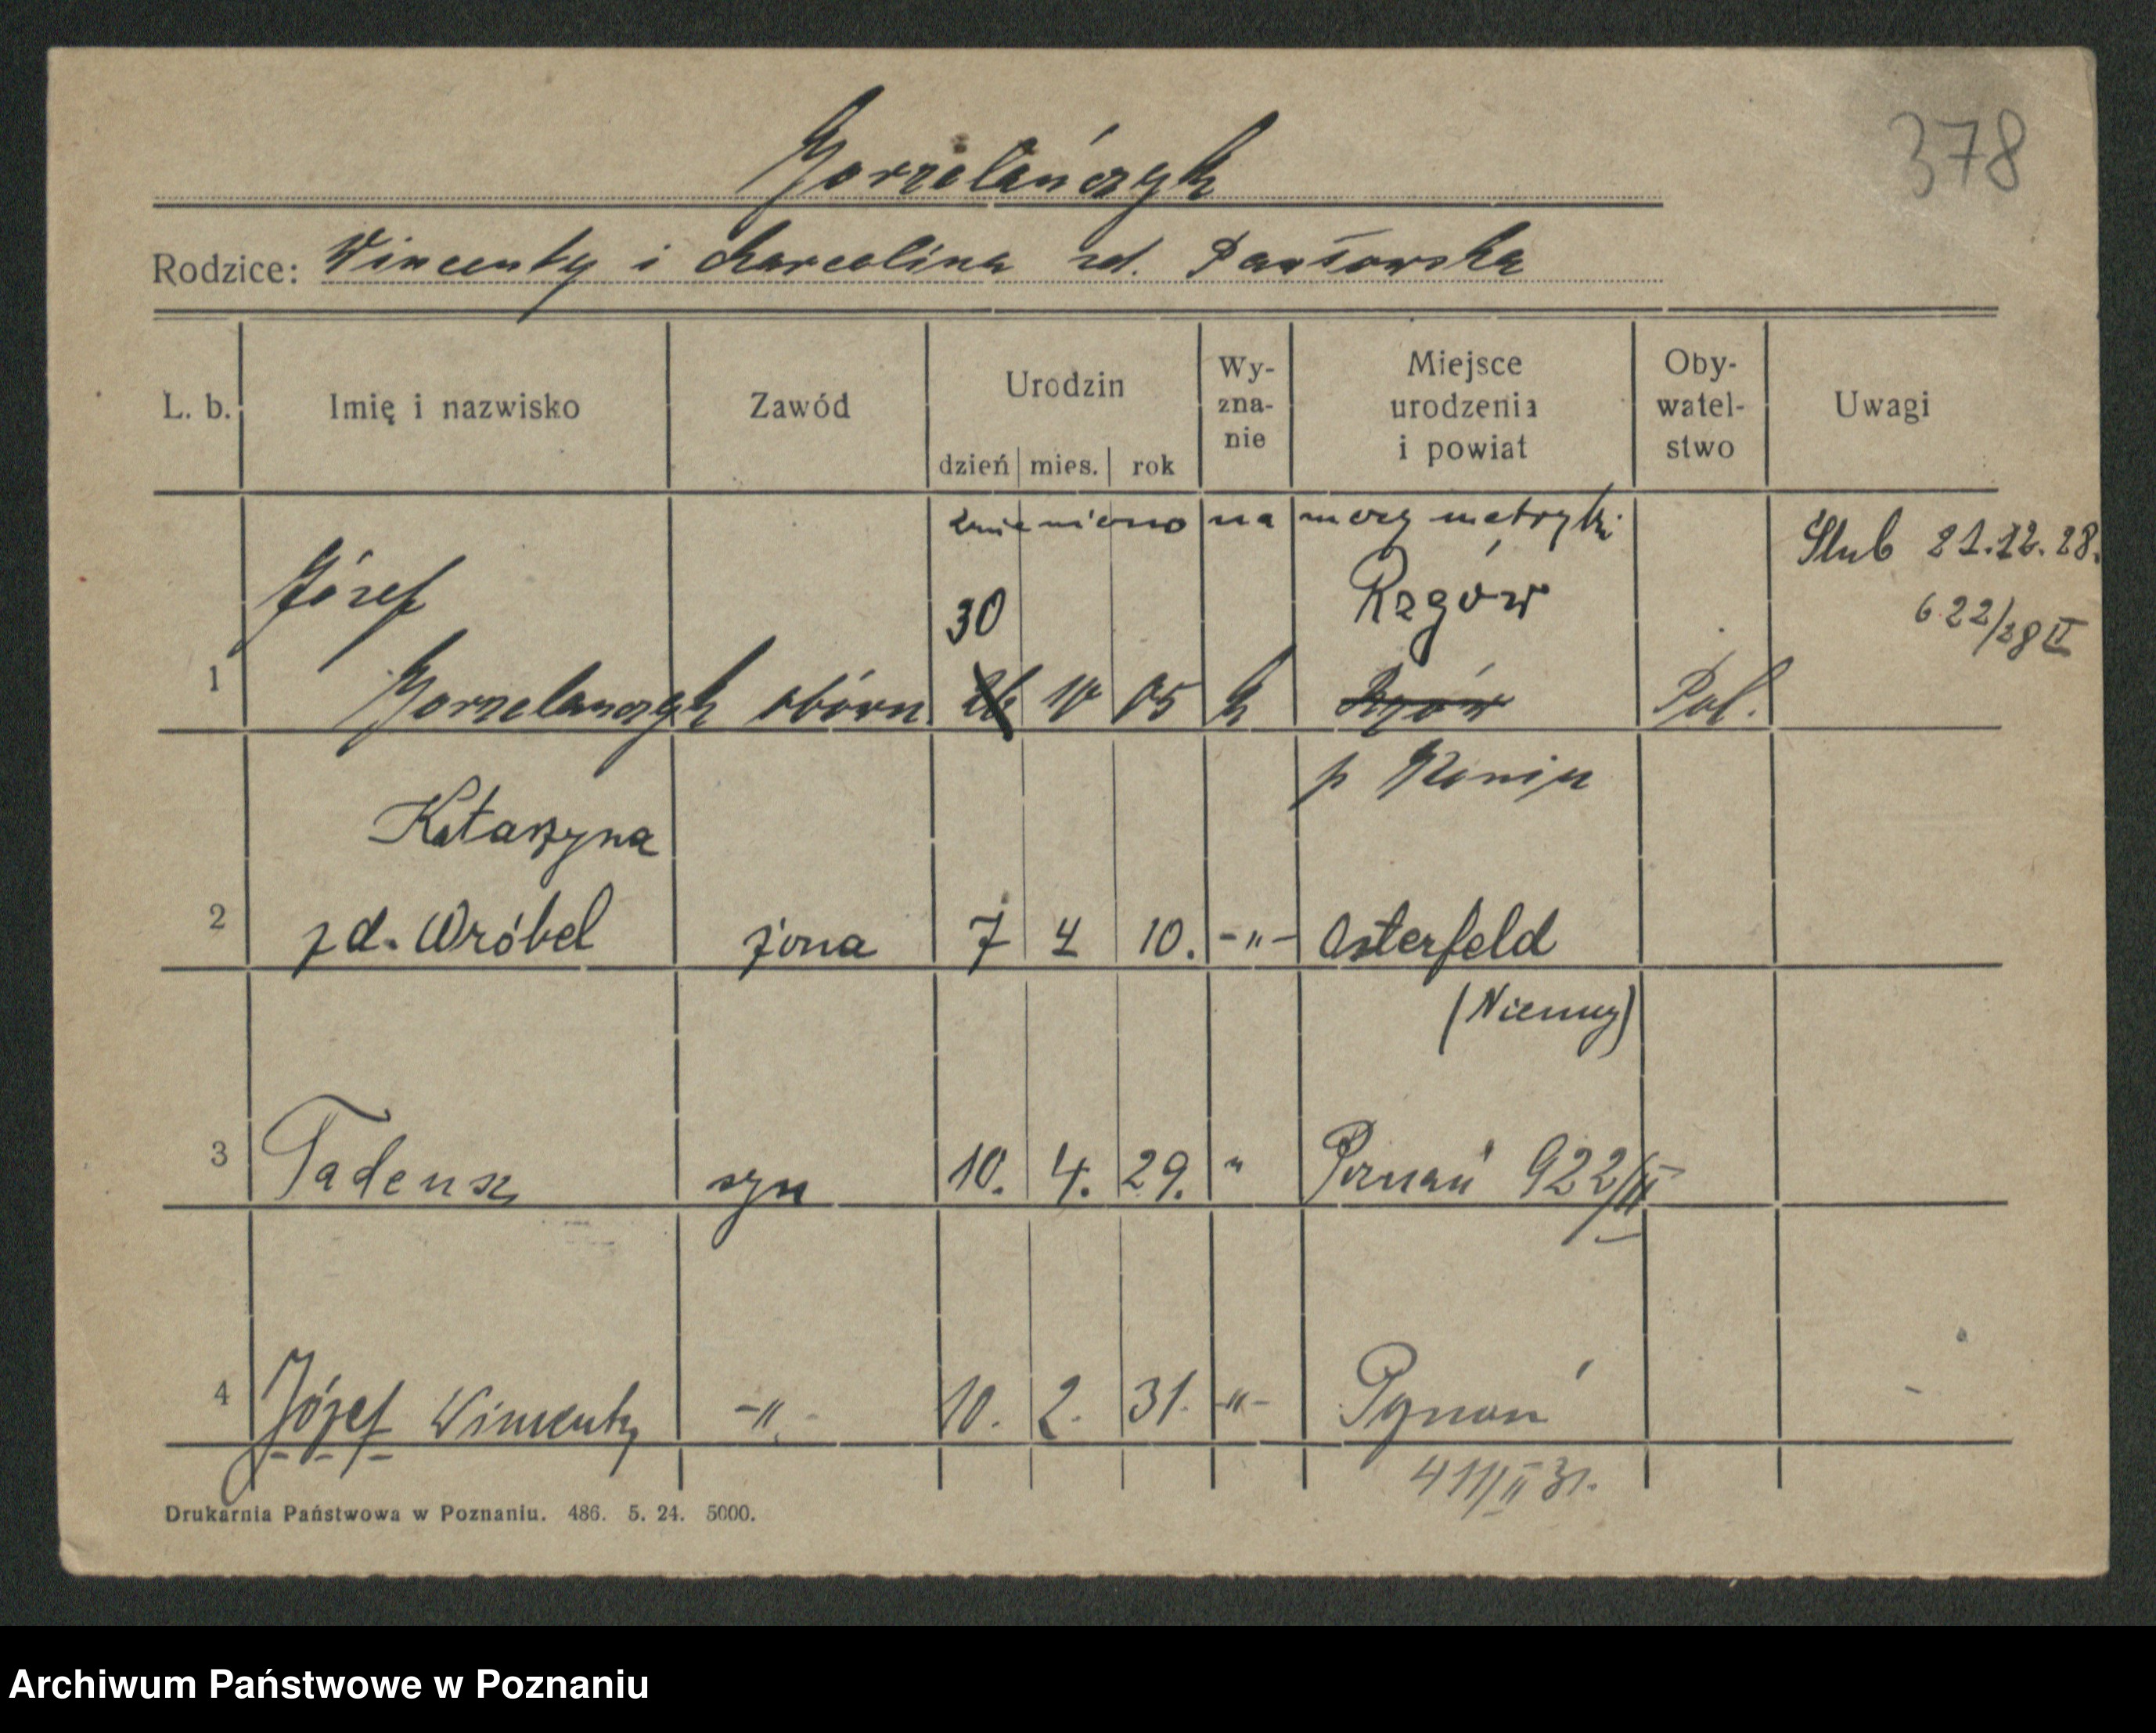 378
Gorzelańczyk
Rodzice: Wincenty i Marcelina zd. Pawłowska
L. b. Imię i nazwisko Zawód Urodzin dzień mies. rok Wy-zna-nie Miejsce urodzenia i powiat Oby-watel-stwo Uwagi
zmieniono na mocy metryki
Ślub 21.12.28.
Józef 30 Rzgów 622/28 II
1 Gorzelanczyk 26 10 05 k Rzów Pol.
p Konin
Katarzyna
2 zd. Wróbel żona 7 4 10. -"- Osterfeld
(Niemcy)
3 Tadeusz syn 10. 4. 29. " Poznań 922/II
4 Józef Wincenty -"- 10. 2. 31. -"- Poznań
411/II 31.
Drukarnia Państwowa w Poznaniu. 486. 5. 24. 5000.
Archiwum Państwowe w Poznaniu